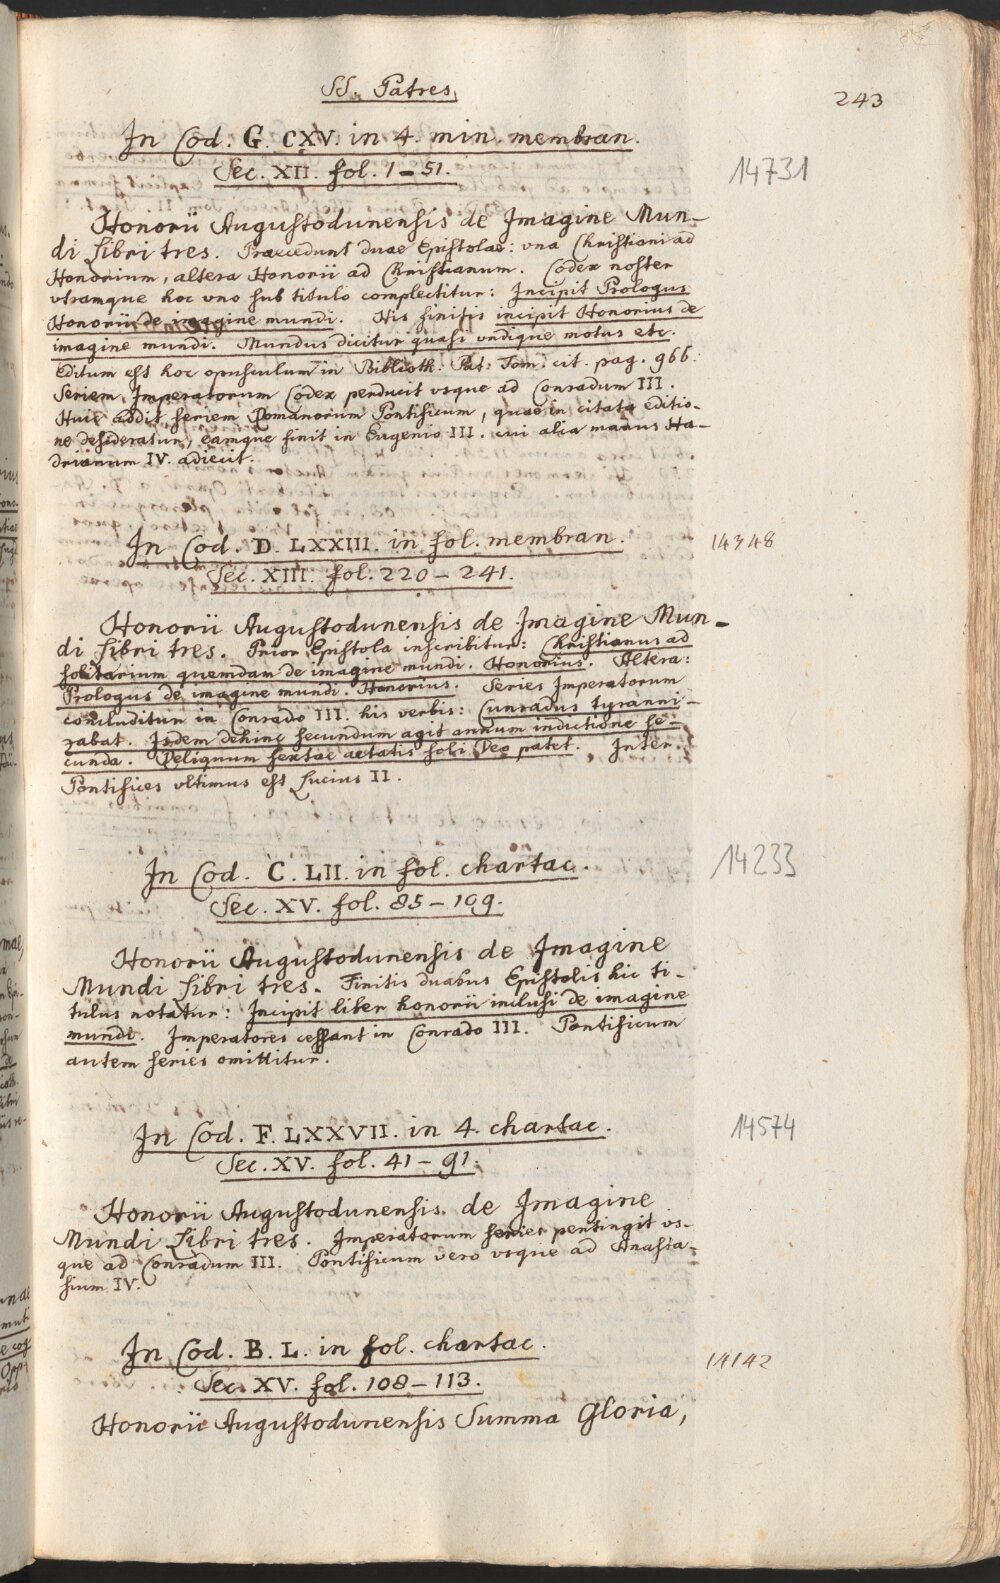 SS. Patres.
243
In Cod. G. CXV. in 4. min. membran.
14731
Sec. XII. fol. 1-51.
Honorii Augustodunensis de Imagine Mun-
di Libri tres. Praecedunt duae Epistolae: vna Christiani ad
Honorium, altera Honorii ad Christianum. Codex noster
vtramque hoc vno sub titulo complectitur: Incipit Prologus
Honorii de imagine mundi. His finitis incipit Honorius de
imagine mundi. Mundus dicitur quasi vndique motus etc.
Editum est hoc opusculum in Biblioth. Pat: Tom. cit. pag. 966.
Seriem Imperatorum Codex perducit vsque ad Conradum III.
Huic addit seriem Romanorum Pontificum, quae in citata editio-
ne desideratur, eamque finit in Eugenio III. cui alia manus Ha-
drianum IV. adiecit.
In Cod. D. LXXIII. in fol. membran.
14348
Sec. XIII. fol. 220-241.
Honorii Augustodunensis de Imagine Mun-
di Libri tres. Prior Epistola inscribitur: Christianus ad
solitarium quemdam de imagine mundi. Honorius. Altera:
Prologus de imagine mundi. Honorius. Series Imperatorum
concluditur in Conrado III. his verbis: Cunradus tyranni-
zabat. Isdem dehinc secundum agit annum indictione se-
cunda. Reliquum sextae aetatis soli Deo patet. Inter
Pontifices vltimus est Lucius II.
In Cod. C. LII. in fol. chartac.
14233
Sec. XV. fol. 85-109.
Honorii Augustodunensis de Imagine
Mundi Libri tres. Finitis duabus Epistolis hic ti-
tulus notatur: Incipit liber honorii inclusi de imagine
mundi. Imperatores cessant in Conrado III. Pontificum
autem series omittitur.
In Cod. F. LXXVII. in 4. chartac.
14574
Sec. XV. fol. 41-91.
Honorii Augustodunensis de Imagine
Mundi Libri tres. Imperatorum series pertingit vs-
que ad Conradum III. Pontificum vero vsque ad Anasta-
sium IV.
In Cod. B. L. in fol. chartac.
14142
Sec. XV. fol. 108-113.
Honorii Augustodunensis Summa Gloria,